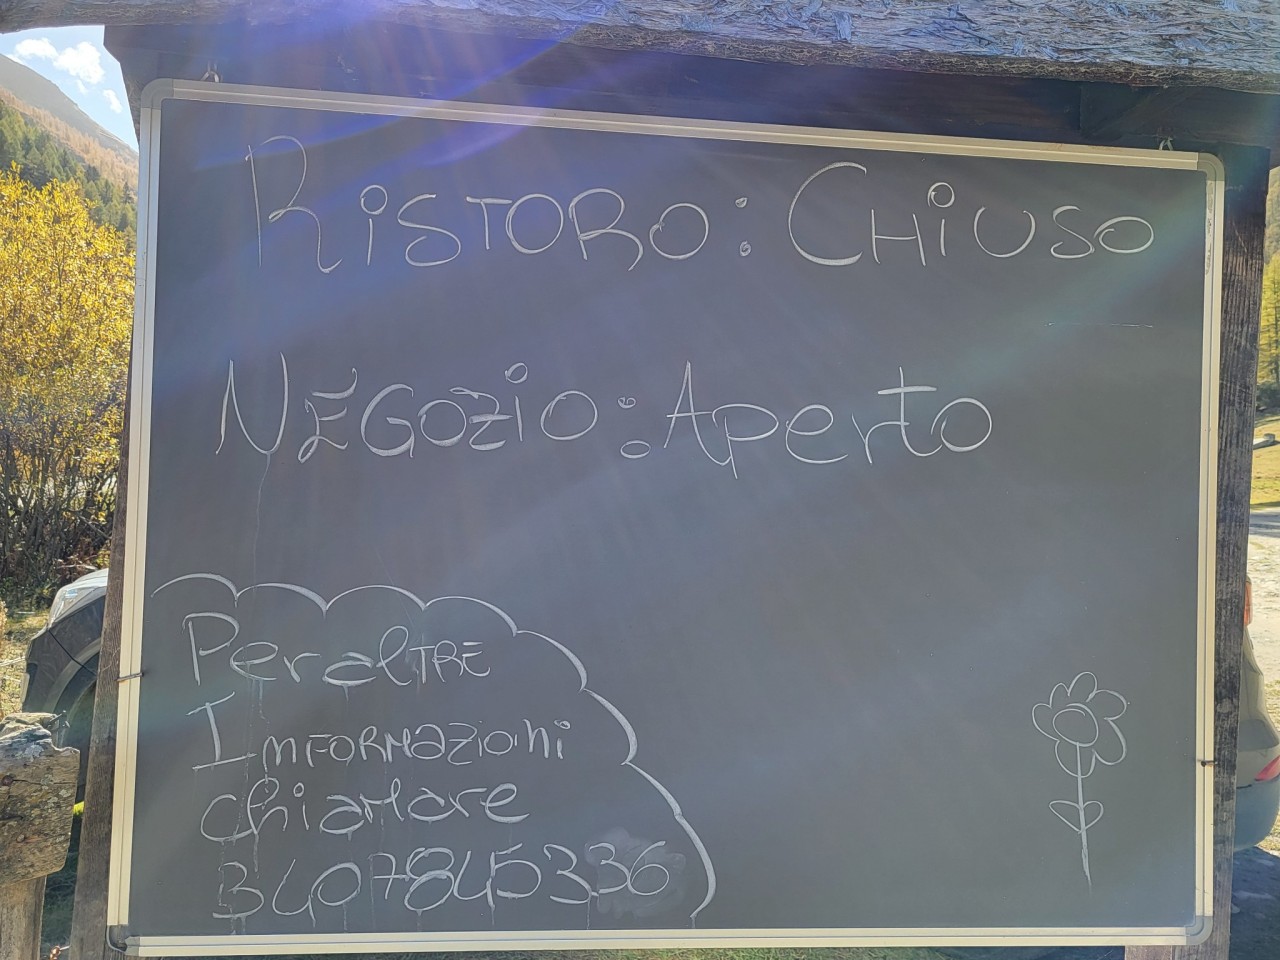 Ristoro: Chiuso
Negozio: Aperto
Per altre
Informazioni
chiamare
3407845336